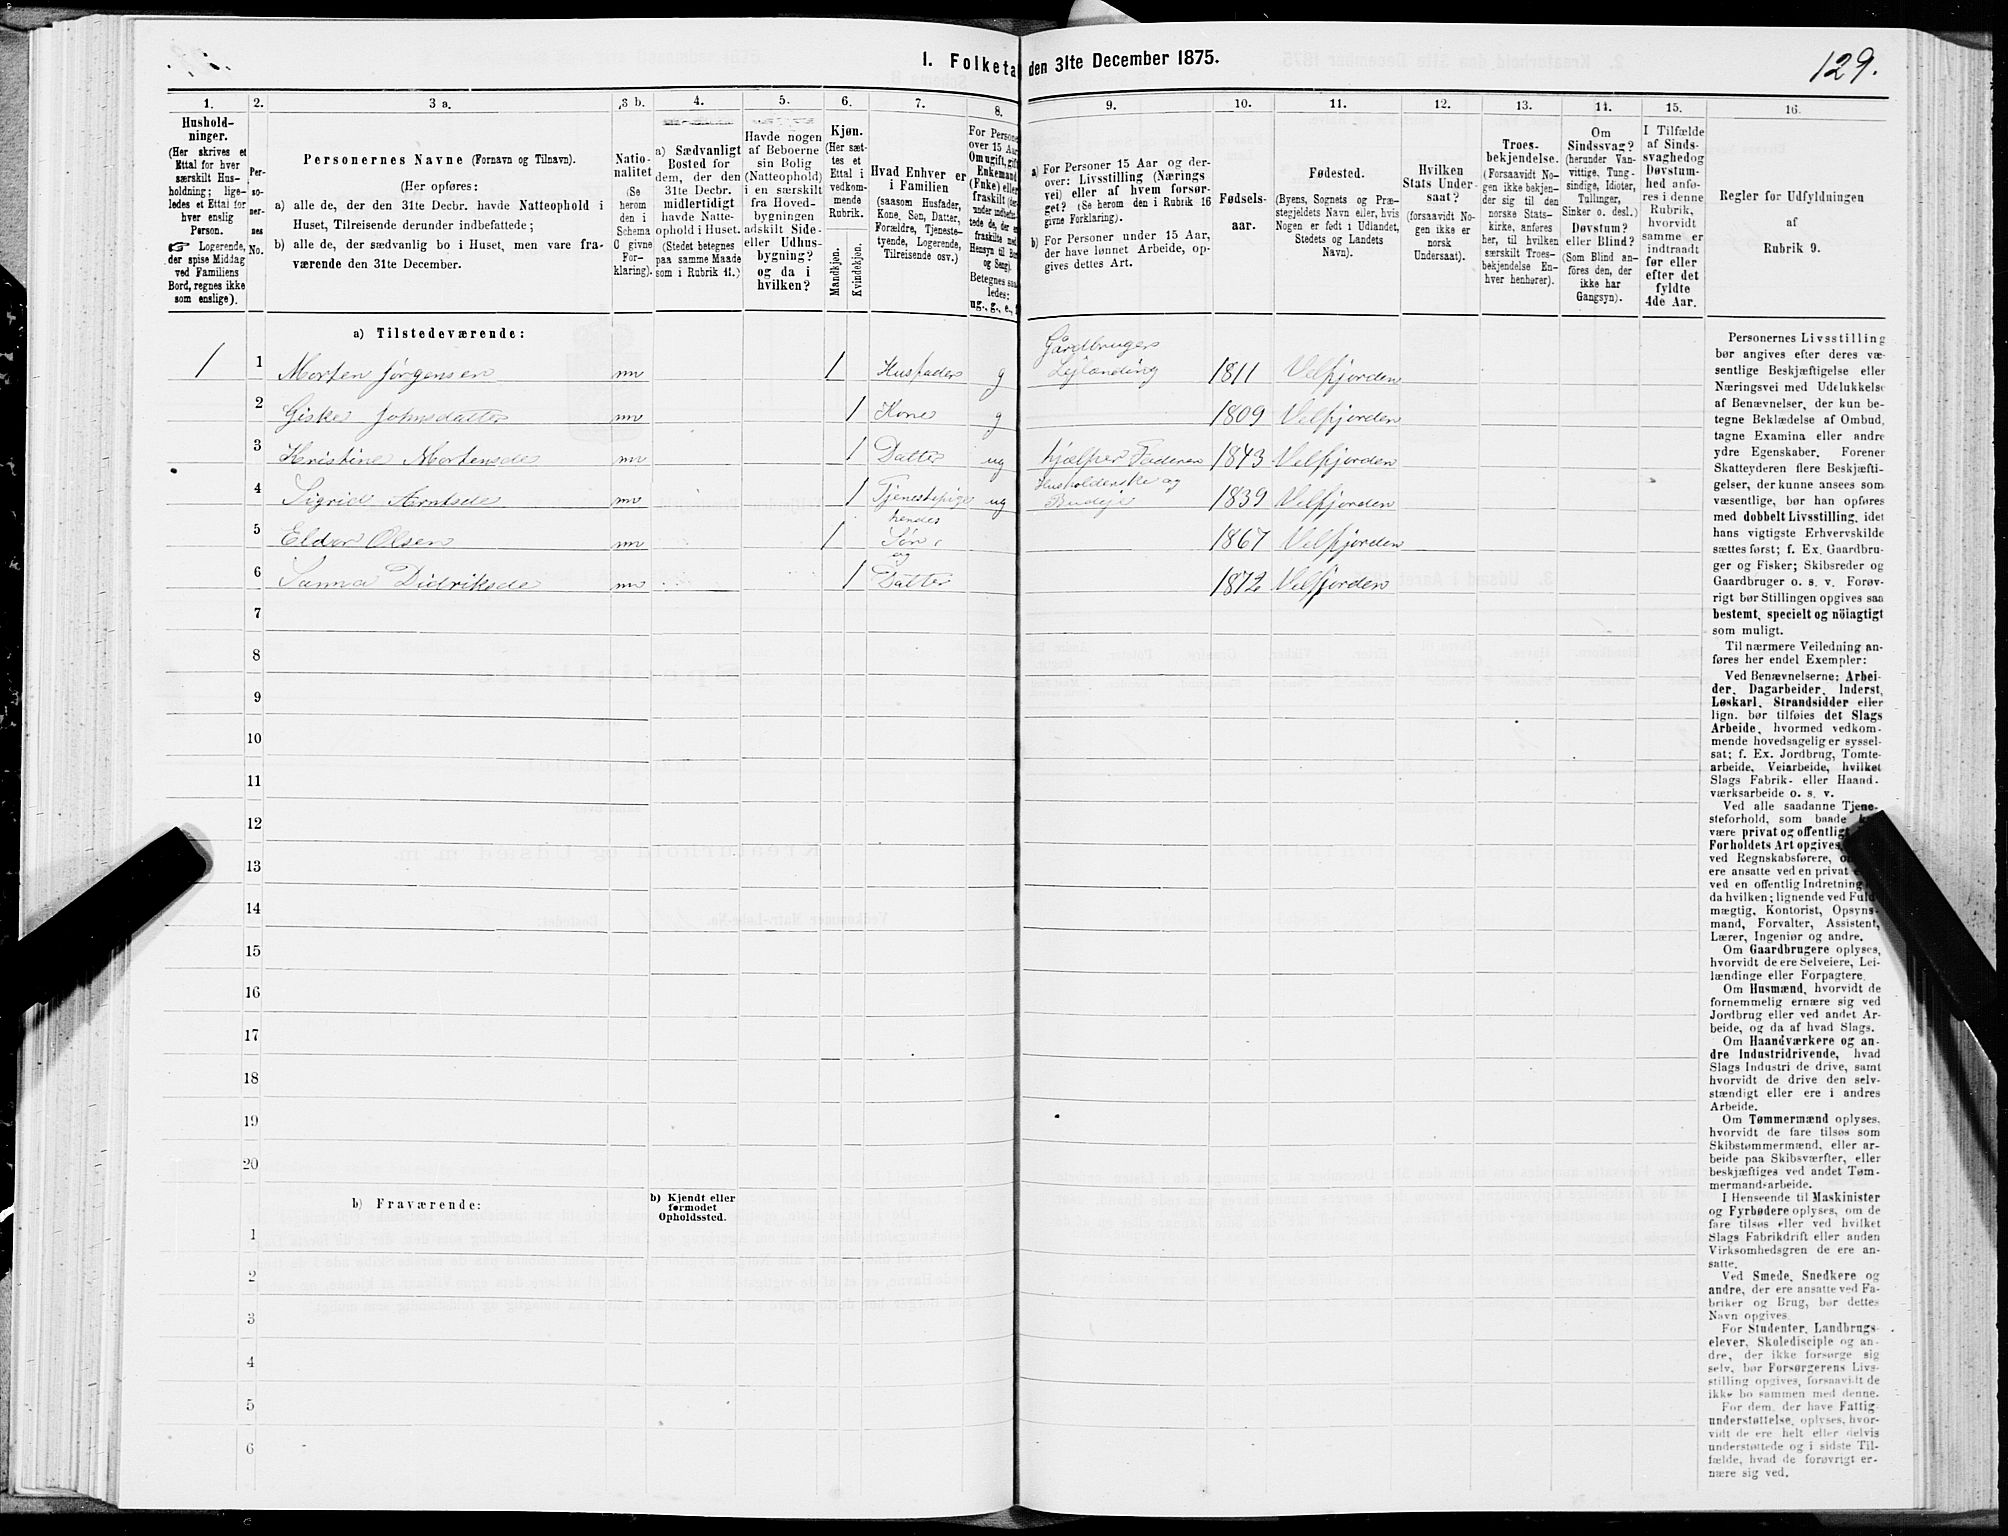 1. Folketal den 31te December 1875.
129.
1.
2.
3 a.
3 b.
4.
5.
6.
7.
8.
9.
10.
11.
12.
13.
14.
15.
16.
Hushold-
ninger.
(Her skrives et
Ettal for hver
særskilt Hus-
holdning; lige-
ledes et Ettal for
hver enslig
Person.
☞ Logerende,
der spise Middag
ved Familiens
Bord, regnes ikke
som enslige).
Per-
so-
ner-
nes
No.
Personernes Navne (Fornavn og Tilnavn).
(Her opføres:
a) alle de, der den 31te Decbr. havde Natteophold i
Huset, Tilreisende derunder indbefattede;
b) alle de, der sædvanlig bo i Huset, men vare fra-
værende den 31te December.
Natio-
nalitet
(Se
herom
den i
Schema
C givne
For-
klaring).
a) Sædvanligt
Bosted for
dem, der den
31te Decbr.
midlertidigt
havde Natte-
ophold i Huset.
(Stedet betegnes
paa samme Maade
som i Rubrik 11.)
Havde nogen
af Beboerne
sin Bolig
(Natteophold)
i en særskilt
fra Hoved-
bygningen
adskilt Side-
eller Udhus-
bygning?
og da i
hvilken?
Kjøn.
(Her sæt-
tes et
Ettal i
vedkom-
mende
Rubrik.
Mandkjøn.
Kvindekjøn.
Hvad Enhver er
i Familien
(saasom Husfader,
Kone, Søn, Datter,
Forældre, Tjeneste-
tyende, Logerende,
Tilreisende osv.)
For Persone
over 15 Aar
Om ugift, gift
Enkemand
(Enke) eller
fraskilt
Betegnes saa
ledes:
ug., g., e., f.
a) For Personer 15 Aar og der-
over: Livsstilling (Nærings
vei) eller af hvem forsør-
get? (Se herom den i Rubrik 16
givne Forklaring).
b) For Personer under 15 Aar,
der have lønnet Arbeide, op-
gives dettes Art.
Fødsels-
aar.
Fødested.
(Byens, Sognets og Præ-
stegjeldets Navn eller, hvis
Nogen er født i Udlandet,
Stedets og Landets
Navn).
Hvilken
Stats Under-
saat?
(forsaavidt No-
gen ikke er
norsk
Undersaat).
Troes-
bekjendelse.
(Forsaavidt No-
gen ikke bekjen-
der sig til den
norske Stats-
kirke, anføres
her, til hvilken
særskilt Troes-
bekjendelse En-
hver henhører).
Om
Sindssvag?
(herunder Van-
vittige, Tung-
sindige, Idioter,
Tullinger,
Sinker o. desl.)
Døvstum?
eller Blind?
(Som Blind an-
føres den, der
ikke har
Gangsyn).
I Tilfælde
af Sinds-
svaghedog
Døvstum-
hed anfø-
res i denne
Rubrik,
hvorvidt
samme er
indtraadt
før eller
efter det
fyldte
4de Aar.
Regler for Udfyldningen
af
Rubrik 9.
a) Tilstedeværende:
1 1 Morten Jørgensen nn 1 Husfader g Gårdbruger Lejlænding 1811 Velfjorden
2 Giske Johnsdatter nn 1 Kone g 1809 Velfjorden
3 Kristine Mortensde nn 1 Datter ug hjælper Faderen 1843 Velfjorden
4 Sigrid Arntsde nn 1 Tjenestepige ug Husholderske og Budeje 1839 Velfjorden
5 Eldor Olsen nn 1 hendes Søn, 1867 Velfjorden
6 Sanna Didriksde nn 1 og Datter 1872 Velfjorden
7
8
9
10
11
12
13
14
15
16
17
18
19
20
b) Fraværende:
b) Kjendt eller
formodet
Opholdssted.
1
2
3
4
5
6
Personernes Livsstilling
bør angives efter deres væ-
sentlige Beskjæftigelse eller
Næringsvei med Udelukkelse
af Benævnelser, der kun be-
tegne Beklædelse af Ombud,
tagne Examina eller andre
ydre Egenskaber. Forener
Skatteyderen flere Beskjæfti-
gelser, der kunne ansees som
væsentlige, bør han opføres
med dobbelt Livsstilling, idet
hans vigtigste Erhvervskilde
sættes først; f. Ex. Gaardbru-
ger og Fisker; Skibsreder og
Gaardbruger o. s. v. Forøv-
rigt bør Stillingen opgives saa
bestemt, specielt og nöiagtigt
som muligt.
Til nærmere Veiledning an-
føres her endel Exempler:
Ved Benævnelserne: Arbei-
der, Dagarbeider, Inderst,
Løskarl, Strandsidder eller
lign. bør tilføies det Slags
Arbeide, hvormed vedkom-
mende hovedsagelig er syssel-
sat; f. Ex. Jordbrug, Tomte-
arbeide, Veiarbeide, hvilket
Slags Fabrik- eller Haand-
værksarbeide o. s. v.
Ved alle saadanne Tjene-
steforhold, som baade
være privat og offentligt
Forholdets Art opgives,
ved Regnskabsførere,
ere ansatte ved en privat
ved en offentlig Indretning
da hvilken; lignende ved Fuld
mægtig, Kontorist, Opsyns-
mand, Forvalter, Assistent,
Lærer, Ingeniør og andre.
Om Gaardbrugere oplyses,
hvorvidt de ere Selveiere, Lei-
lændinge eller Forpagtere.
Om Husmænd, hvorvidt de
fornemmelig ernære sig ved
Jordbrug eller ved andet Ar-
beide, og da af hvad Slags.
Om Haandværkere og an-
dre Industridrivende, hvad
Slags Industri de drive, samt
hvorvidt de drive den selv-
stændigt eller ere i andres
Arbeide.
Om Tømmermænd oplyses,
hvorvidt de fare tilsøs som
Skibstømmermænd, eller ar-
beide paa Skibsværfter, eller
beskjæftiges ved andet Tøm-
mermandsarbeide.
I Henseende til Maskinister
og Fyrbødere oplyses, om de
fare tilsøs eller ved hvilket
Slags Fabrikdrift eller anden
Virksomhedsgren de ere an-
satte.
Ved Smede, Snedkere og
andre, der ere ansatte ved Fa-
briker og Brug, bør dettes
Navn opgives.
For Studenter, Landbrugs-
elever, Skoledisciple og an-
dre, der ikke forsørge sig
selv, bør Forsørgerens Livs-
stilling opgives, forsaavidt de
ikke bo sammen med denne.
For dem, der have Fattig-
understøttelse, oplyses, hvor-
vidt de ere helt eller delvis
understøttede og i sidste Til-
fælde, hvad de forøvrigt er-
nære sig ved.